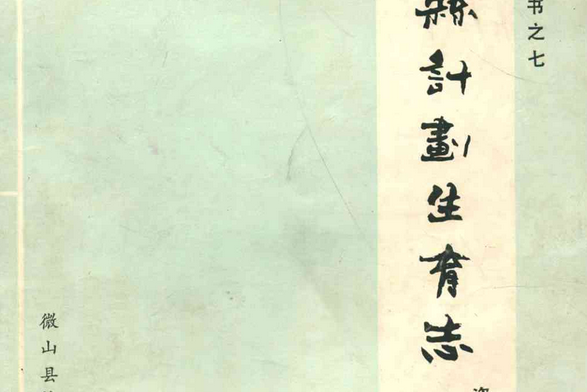 书之七
縣計劃生育志
微山县